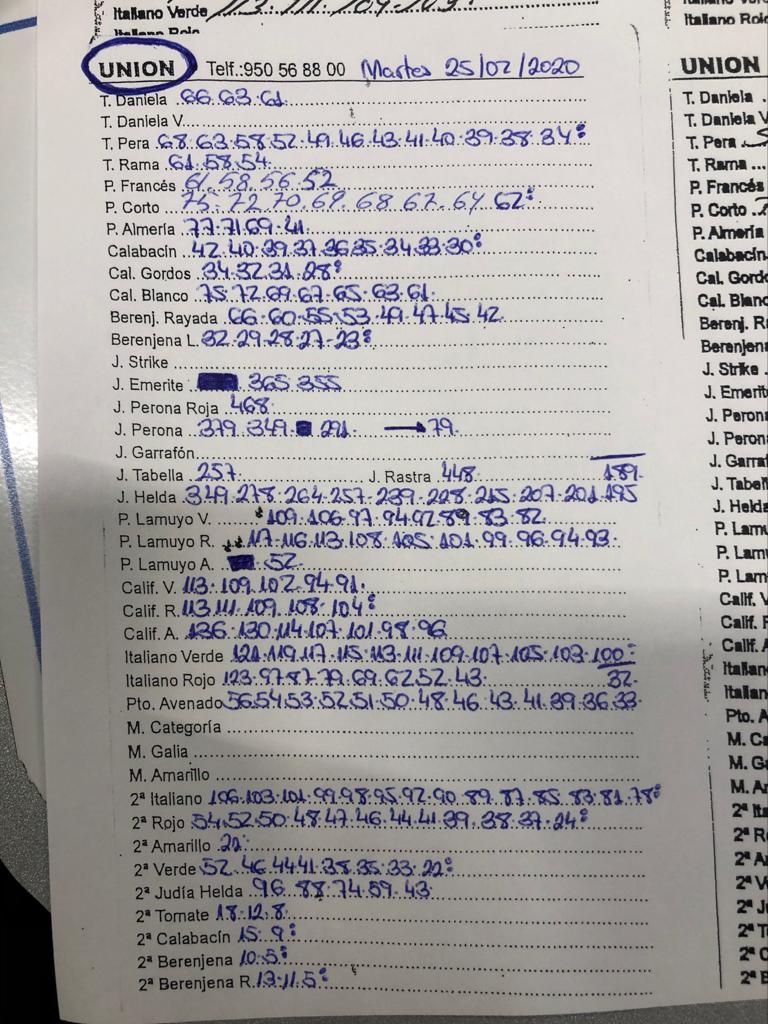 Italiano Verde
UNION Telf.:950 56 88 00 Martes 25/02/2020
T. Daniela 66.63.61.
T. Daniela V.
T. Pera 68.63.58.52.49.46.43.41.40.39.38.34:
T. Rama 61.58.54.
P. Francés 61.58.56.52
P. Corto 75.72.70.69.68.67.64.62:
P. Almería 77.71.69.41.
Calabacín 42.40.39.37.36.35.34.33.30:
Cal. Gordos 34.32.31.28:
Cal. Blanco 75.72.69.67.65.63.61.
Berenj. Rayada 66.60.55.53.49.47.45.42.
Berenjena L. 32.29.28.27-23:
J. Strike
J. Emerite 365.355
J. Perona Roja 468.
J. Perona 379.349. 291. → 79.
J. Garrafón
J. Tabella 257. J. Rastra 448. 189.
J. Helda 349.278.264.257.239.228.215.207.201.195
P. Lamuyo V. 109.106.97.94.92.89.83.82.
P. Lamuyo R. 117.116.113.108.105.101.99.96.94.93.
P. Lamuyo A. 52.
Calif. V. 113.109.102.94.91.
Calif. R. 113.111.109.108.104:
Calif. A. 136.130.114.107.101.98.96
Italiano Verde 121.119.117.115.113.111.109.107.105.103.100:
Italiano Rojo 123.97.87.79.69.62.52.43. 32.
Pto. Avenado 56.54.53.52.51.50.48.46.43.41.39.36.33.
M. Categoría
M. Galia
M. Amarillo
2ª Italiano 106.103.101.99.98.95.92.90.89.87.85.83.81.78:
2ª Rojo 54.52.50.48.47.46.44.41.39.38.37.24:
2ª Amarillo 22:
2ª Verde 52.46.44.41.38.35.33.22:
2ª Judía Helda 96.88.74.59.43.
2ª Tomate 18.12.8.
2ª Calabacín 15.9:
2ª Berenjena 10.5:
2ª Berenjena R. 13.11.5:
Italiano Rojo
UNION
T. Daniela
T. Daniela V
T. Pera
T. Rama
P. Francés
P. Corto
P. Almería
Calabacín
Cal. Gord
Cal. Blanc
Berenj. R
Berenjena
J. Strike
J. Emerit
J. Peron
J. Peron
J. Garra
J. Tabel
J. Helda
P. Lamu
P. Lam
P. Lam
Calif. V
Calif. F
Calif. A
Italian
Italian
Pto. A
M. Ca
M. G
M. A
2ª Ita
2ª R
2ª A
2ª V
2ª J
2ª T
2ª C
2ª B